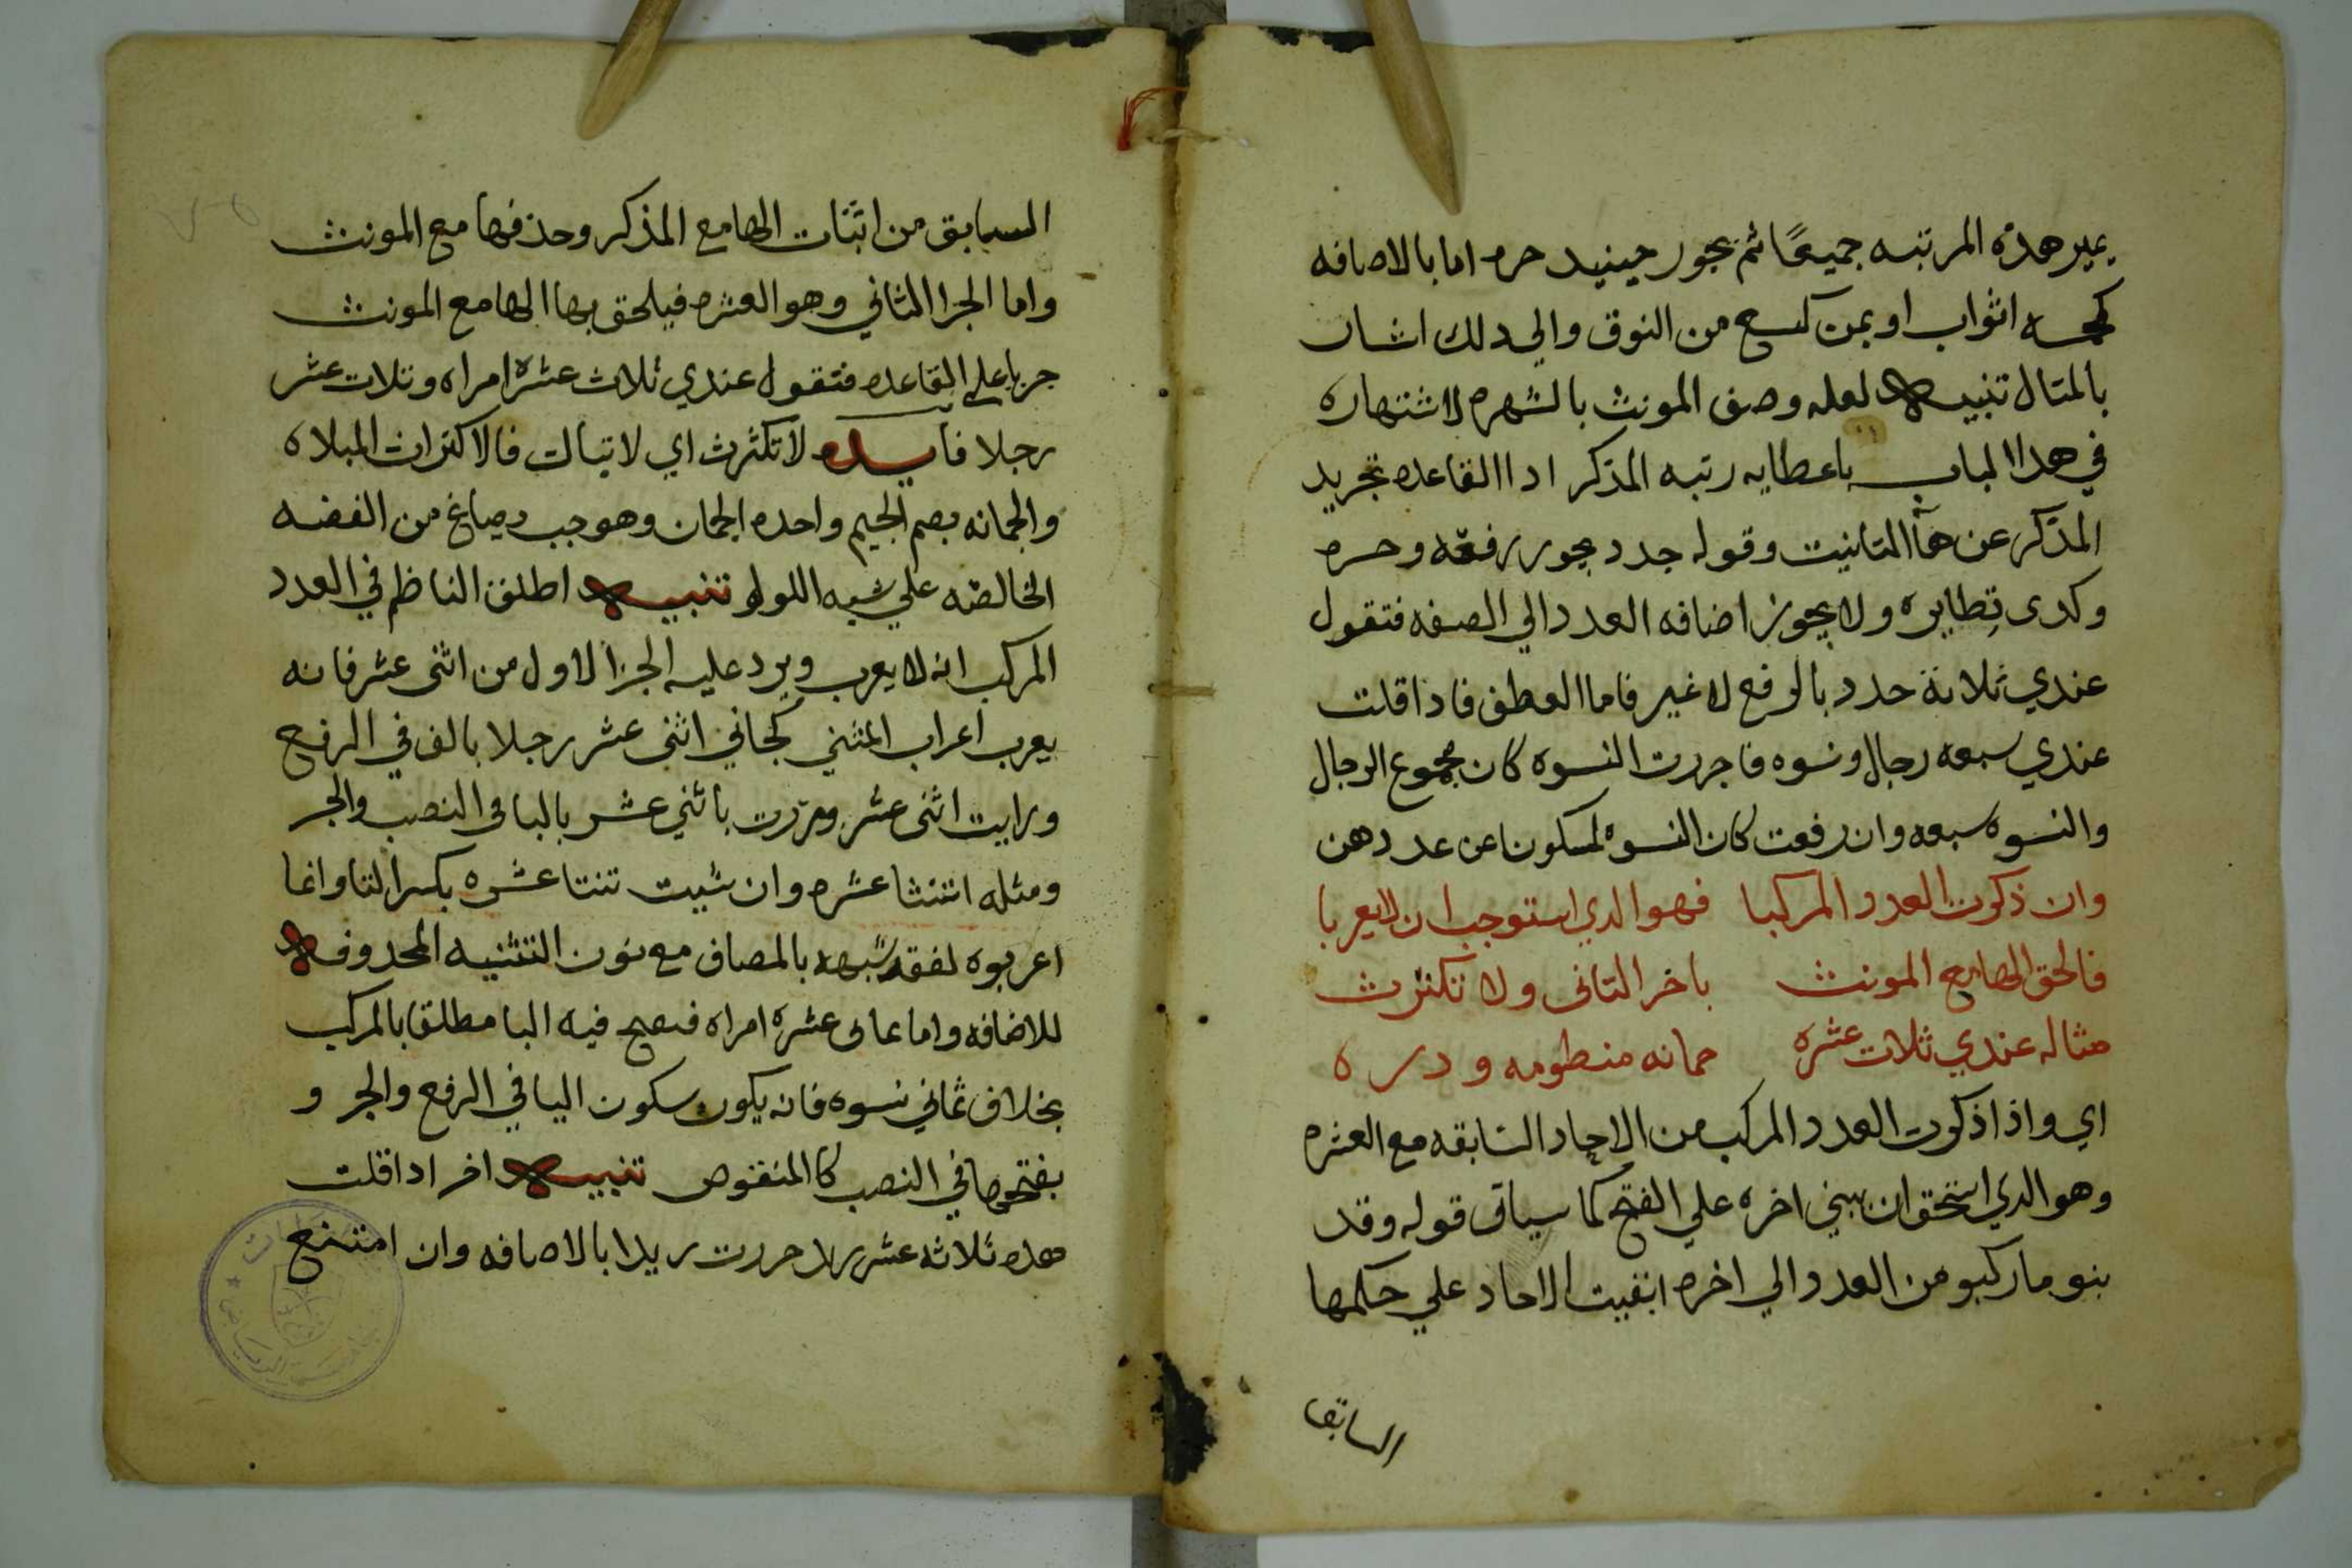 يميز هده المرتبه جميعًا ثم يجوز حينيد جره اما بالاضافه
كخمسه اثواب او بمن كتسع من النوق والي دلك اشار
بالمثال تنبيه لعله وصف المونث بالشهره لاشتهاره
في هدا الباب باعطايه رتبه المذكر ادا القاعده تجريد
المذكر عن هآ التانيت وقوله جدد يجوز رفعه وجره
وكدى نطايره ولا يجوز اضافه العدد الي الصفه فتقول
عندي ثلاثة جدد بالرفع لا غير فاما العطف فاذا قلت
عندي سبعه رجال ونسوه فاجررت النسوه كان مجموع الرجال
والنسوه سبعه وان رفعت كان النسوه لمسكونا عن عددهن
وان ذكرت العدد المركبا فهو الدي استوجب ان لا يعربا
فالحق الها مع المونث باخر الثاني ولا تكترث
مثاله عندي ثلاث عشره جمانه منظومه ودره
اي واذا ذكرت العدد المركب من الاحاد السابقه مع العشره
وهو الدي استحق ان يبني اخره علي الفتح كما سياتي قوله وقد
بنو ما ركبو من العدد الي اخره ابقيت الاحاد علي حكمها
السابق
السابق من اثبات الها مع المذكر وحذفها مع المونث
واما الجزا الثاني وهو العشره فيلحق بها الها مع المونث
جريا علي القاعده فتقول عندي ثلاث عشرة امراه وثلاث عشر
رجلا فايده لا تكترث اي لا تبال فالاكتراث المبلاه
والجمانه بضم الجيم واحده الجمان وهو حب يصاغ من الفضه
الخالصه علي شبه اللولو تنبيه اطلق الناظم في العدد
المركب انه لا يعرب ويرد عليه الجزا الاول من اثنى عشر فانه
يعرب اعراب المثني كجاني اثنى عشر رجلا بالف في الرفع
ورايت اثنى عشر ومررت باثني عشر باليا في النصب والجر
ومثله اثنتا عشره وان شيت ثنتا عشره بكسر التا وانما
اعربوه لفقد شبهه بالمضاف مع نون التثنيه المحدوفه
للاضافه واما ثماني عشرة امراه فيصح فيه اليا مطلقا بالمركب
بخلاف ثماني نسوه فانه يكون سكون اليا في الرفع والجر و
بفتحها في النصب كالمنقوص تنبيه اخر ادا قلت
هده ثلاثه عشر زيد جررت زيدا بالاضافه وان امتنع